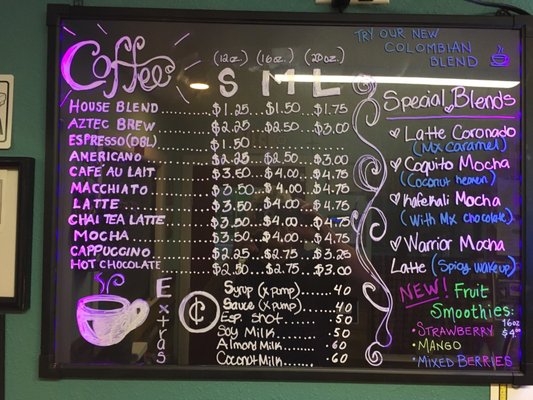 Coffee
(12oz) (16oz) (20oz)
S M L
HOUSE BLEND $1.25 $1.50 $1.75
AZTEC BREW $2.25 $2.50 $3.00
ESPRESSO(DBL) $1.50
AMERICANO $2.25 $2.50 $3.00
CAFÉ AU LAIT $3.50 $4.00 $4.75
MACCHIATO $3.50 $4.00 $4.75
LATTE $3.50 $4.00 $4.75
CHAI TEA LATTE $3.50 $4.00 $4.75
MOCHA $3.50 $4.00 $4.75
CAPPUCCINO $2.25 $2.75 $3.25
HOT CHOCOLATE $2.50 $2.75 $3.00
Extras
Syrup (x pump) .40
Sauce (x pump) .40
Esp. Shot .50
Soy Milk .50
Almond Milk .60
Coconut Milk .60
TRY OUR NEW
COLOMBIAN
BLEND
Special Blends
Latte Coronado
(Mx Caramel)
Coquito Mocha
(Coconut heaven)
Mocha
(With Mx chocolate)
Warrior Mocha
Latte (Spicy wakeup)
NEW! Fruit
Smoothies:
16oz
$4.00
STRAWBERRY
MANGO
MIXED BERRIES